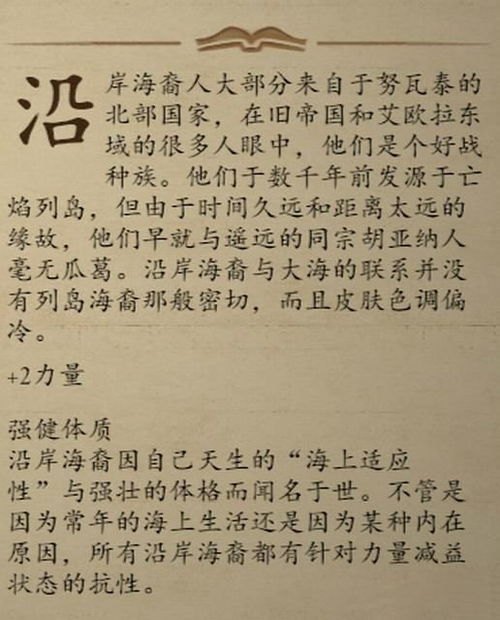 沿岸海裔人大部分来自于努瓦泰的
北部国家，在旧帝国和艾欧拉东
域的很多人眼中，他们是个好战
种族。他们于数千年前发源于亡
焰列岛，但由于时间久远和距离太远的
缘故，他们早就与遥远的同宗胡亚纳人
毫无瓜葛。沿岸海裔与大海的联系并没
有列岛海裔那般密切，而且皮肤色调偏
冷。
+2力量
强健体质
沿岸海裔因自己天生的“海上适应
性”与强壮的体格而闻名于世。不管是
因为常年的海上生活还是因为某种内在
原因，所有沿岸海裔都有针对力量减益
状态的抗性。